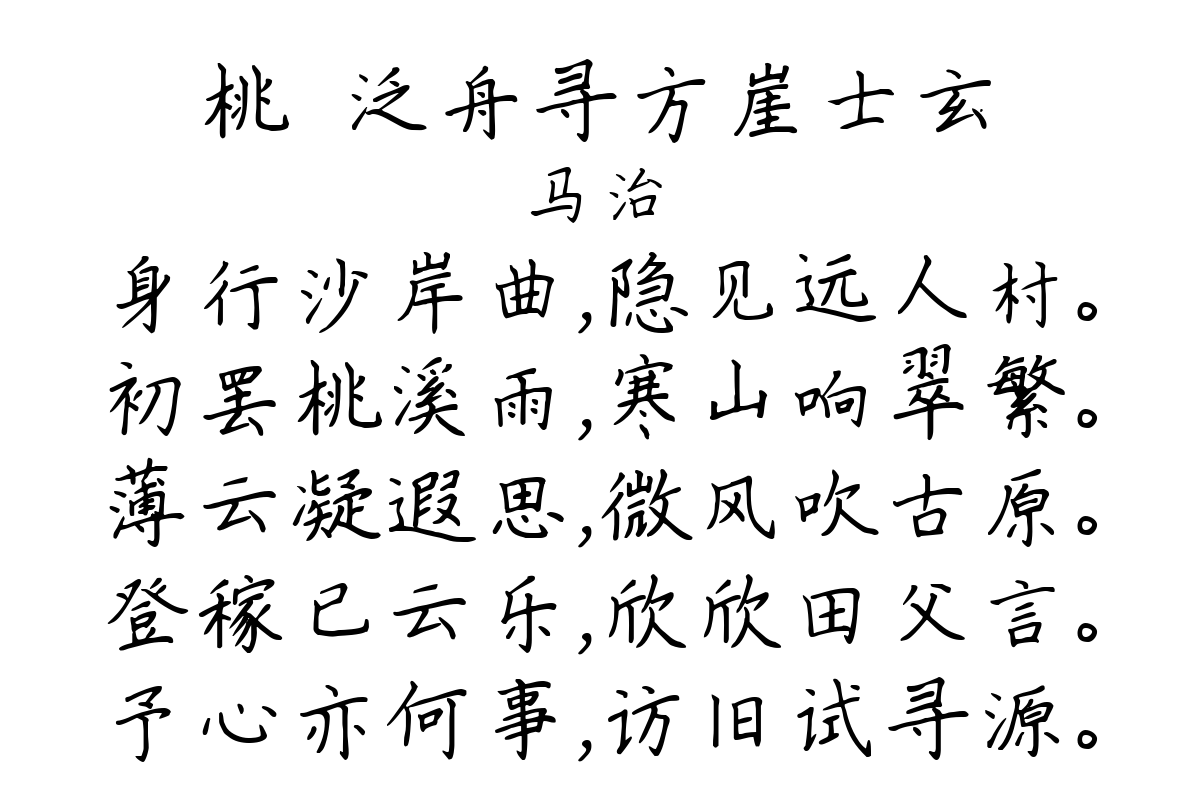 桃 泛舟寻方崖士玄
马治
身行沙岸曲,隐见远人村。
初罢桃溪雨,寒山响翠繁。
薄云凝遐思,微风吹古原。
登稼已云乐,欣欣田父言。
予心亦何事,访旧试寻源。